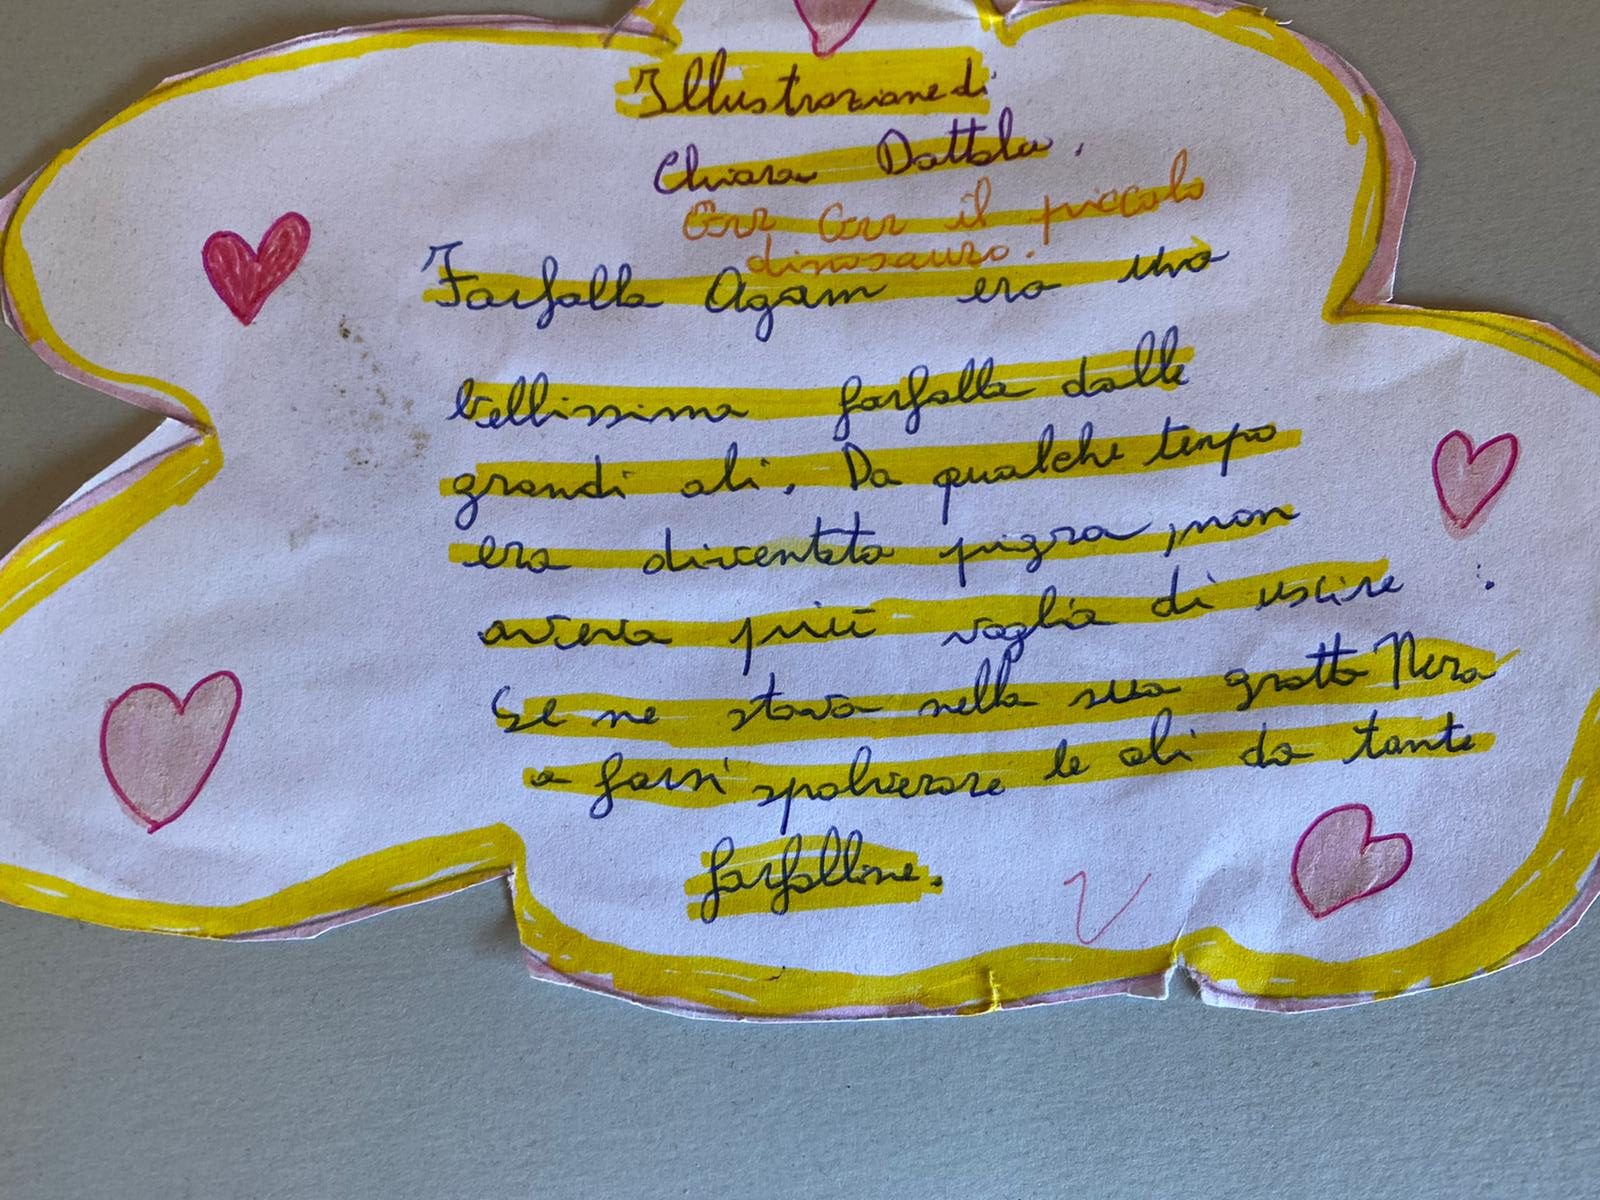 Illustrazione di
Chiara Dattola.
Grr Grr il piccolo
dinosauro.
Farfalla Agam era una
bellissima farfalla dalle
grandi ali. Da qualche tempo
era diventata pigra, non
aveva più voglia di uscire.
Se ne stava nella sua grotta Nera
a farsi spolverare le ali da tante
farfalline.